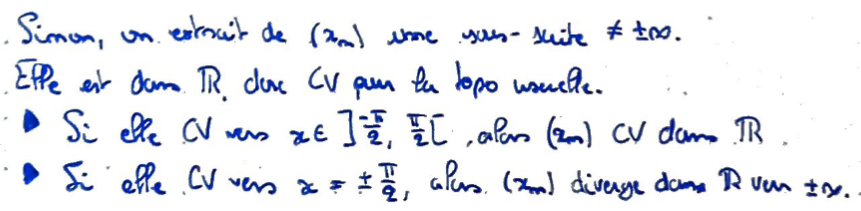 . Sinon, on extrait de (xₙ) une sous-suite ≠ ±∞.
. Elle est dans ℝ, donc CV pour la topo usuelle.
▶ Si elle CV vers x ∈ ]-π/2, π/2[, alors (xₙ) CV dans ℝ.
▶ Si elle CV vers x = ±π/2, alors (xₙ) diverge dans ℝ vers ±∞.